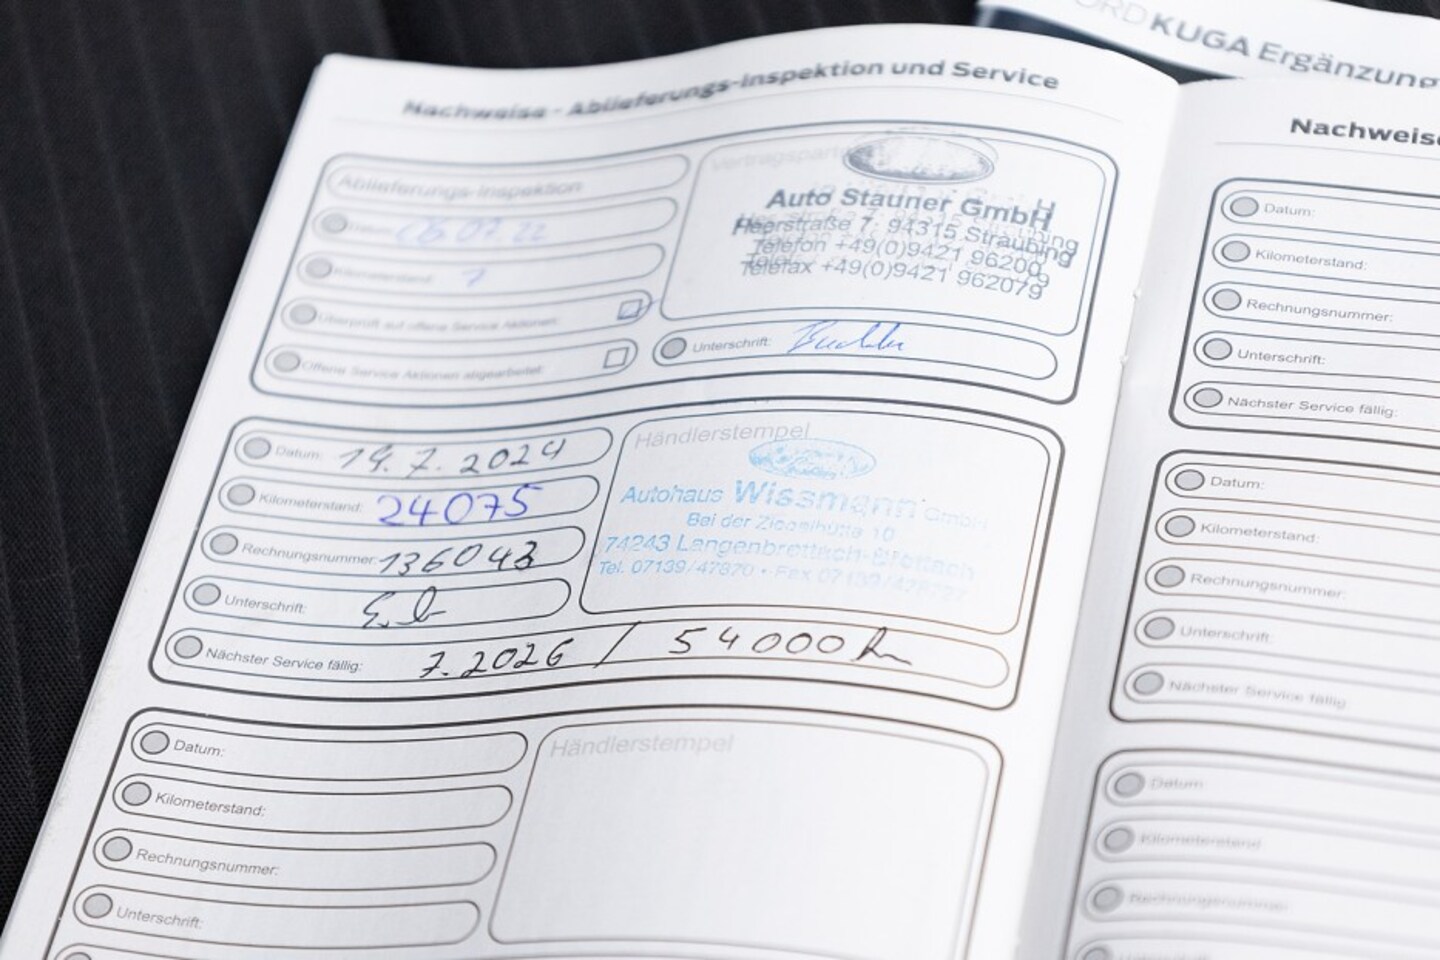 KUGA Ergänzung
Nachweise - Ablieferungs-Inspektion und Service
Ablieferungs-Inspektion
Datum: 06.07.22
Kilometerstand: 7
Überprüft auf offene Service Aktionen:
Offene Service Aktionen abgearbeitet:
Auto Stauner GmbH
Heerstraße 7, 94315 Straubing
Telefon +49(0)9421 96200
Telefax +49(0)9421 962079
Unterschrift:
Datum: 19.7.2024
Kilometerstand: 24075
Rechnungsnummer: 136043
Unterschrift:
Nächster Service fällig: 7.2026 / 54000 km
Händlerstempel
Autohaus Wissmann GmbH
Bei der Ziegelhütte 10
74243 Langenbrettach-Brettach
Tel. 07139/47870 • Fax
Datum:
Kilometerstand:
Rechnungsnummer:
Unterschrift:
Händlerstempel
Nachweise
Datum:
Kilometerstand:
Rechnungsnummer:
Unterschrift:
Nächster Service fällig:
Datum:
Kilometerstand:
Rechnungsnummer:
Unterschrift:
Nächster Service fällig
Datum:
Kilometerstand
Rechnungsnummer
Unterschrift